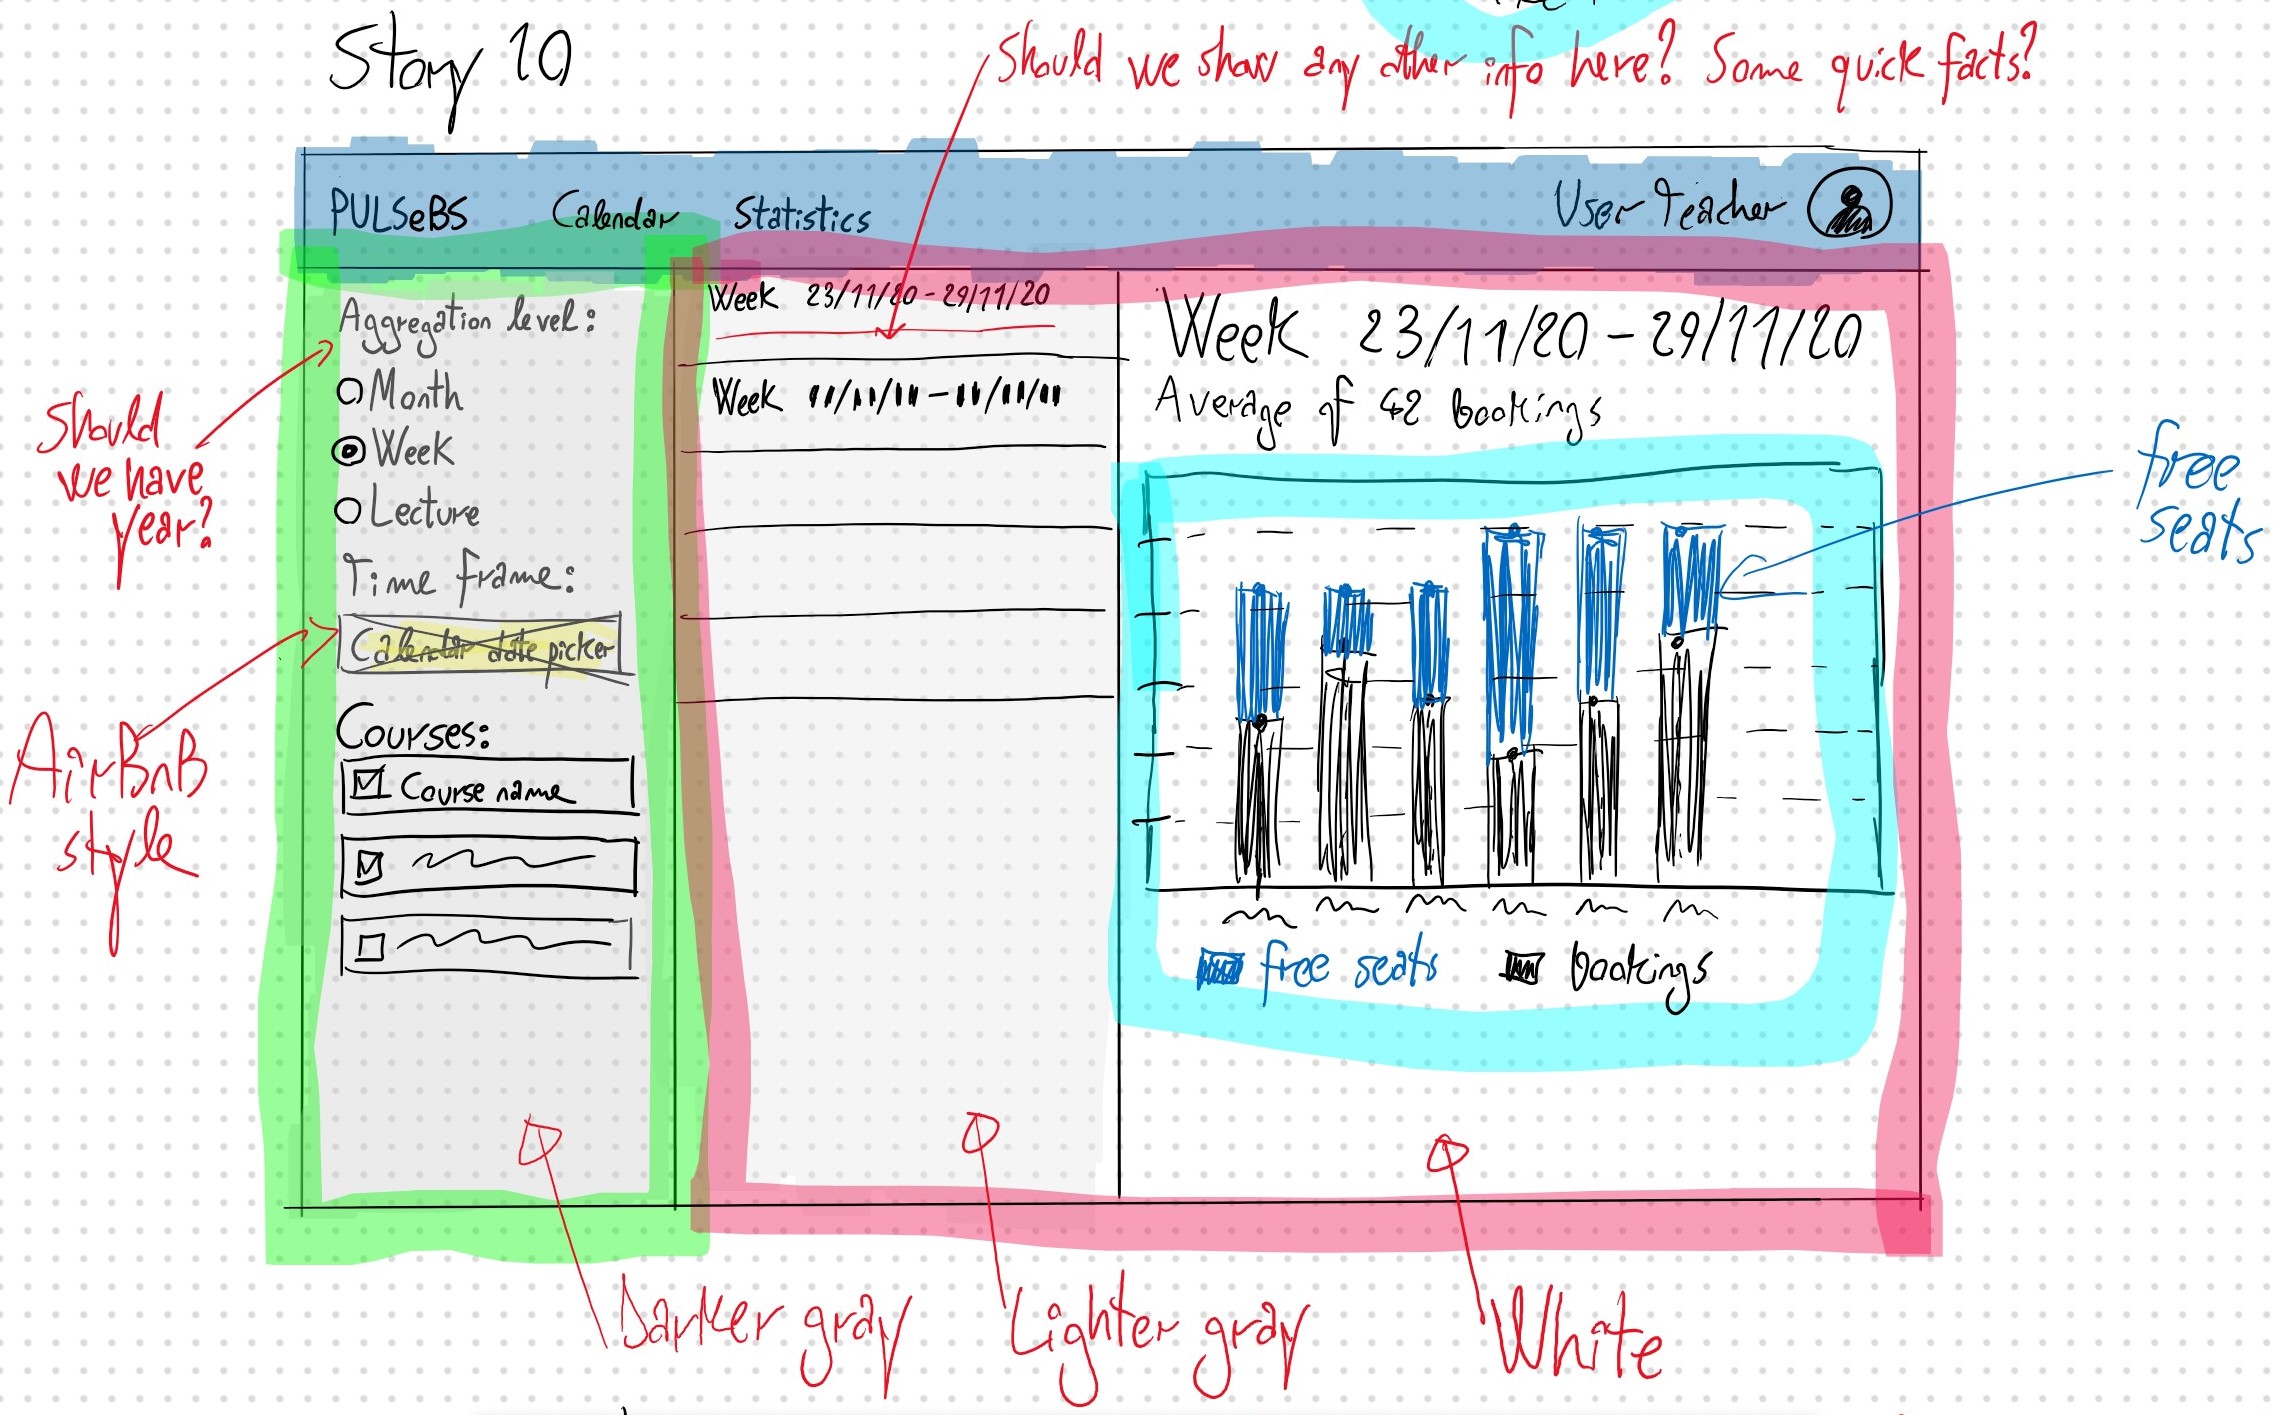 Story 10
Should we show any other info here? Some quick facts?
PULSeBS Calendar Statistics User Teacher
Aggregation level:
Month
Week
Lecture
Time frame:
Calendar date picker
Courses:
Course name
Should
we have
year?
AirBnB
style
Week 23/11/20 - 29/11/20
Week
Week 23/11/20 - 29/11/20
Average of 42 bookings
free
seats
free seats bookings
Darker gray
Lighter gray
White